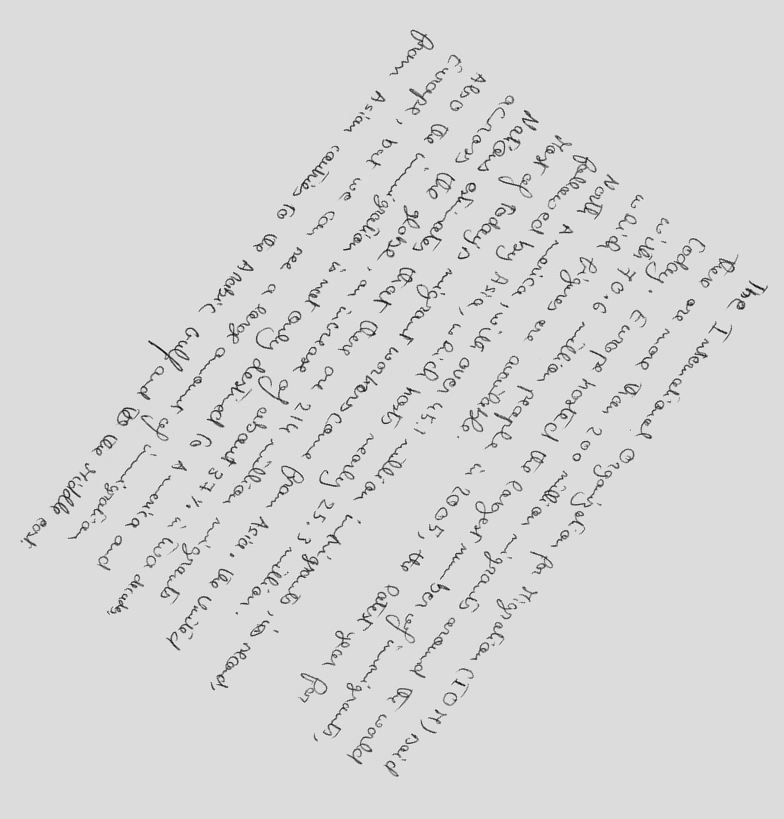 The International Organization for Migration (IOM) said
there are more than 200 million migrants around the world
today. Europe hosted the largest number of immigrants,
with 70.6 million people in 2005, the latest year for
which figures are available.
North America, with over 45.1 million immigrants, is second,
followed by Asia, which hosts nearly 25.3 million.
Most of today's migrant workers come from Asia. the United
Nations estimates that there are 214 million migrants
across the globe, an increase of about 37% in two decades,
Also the immigration is not only destined to America and
Europe, but we can see a large amount of immigration
from Asian countries to the Arabic Gulf and to the Middle east.